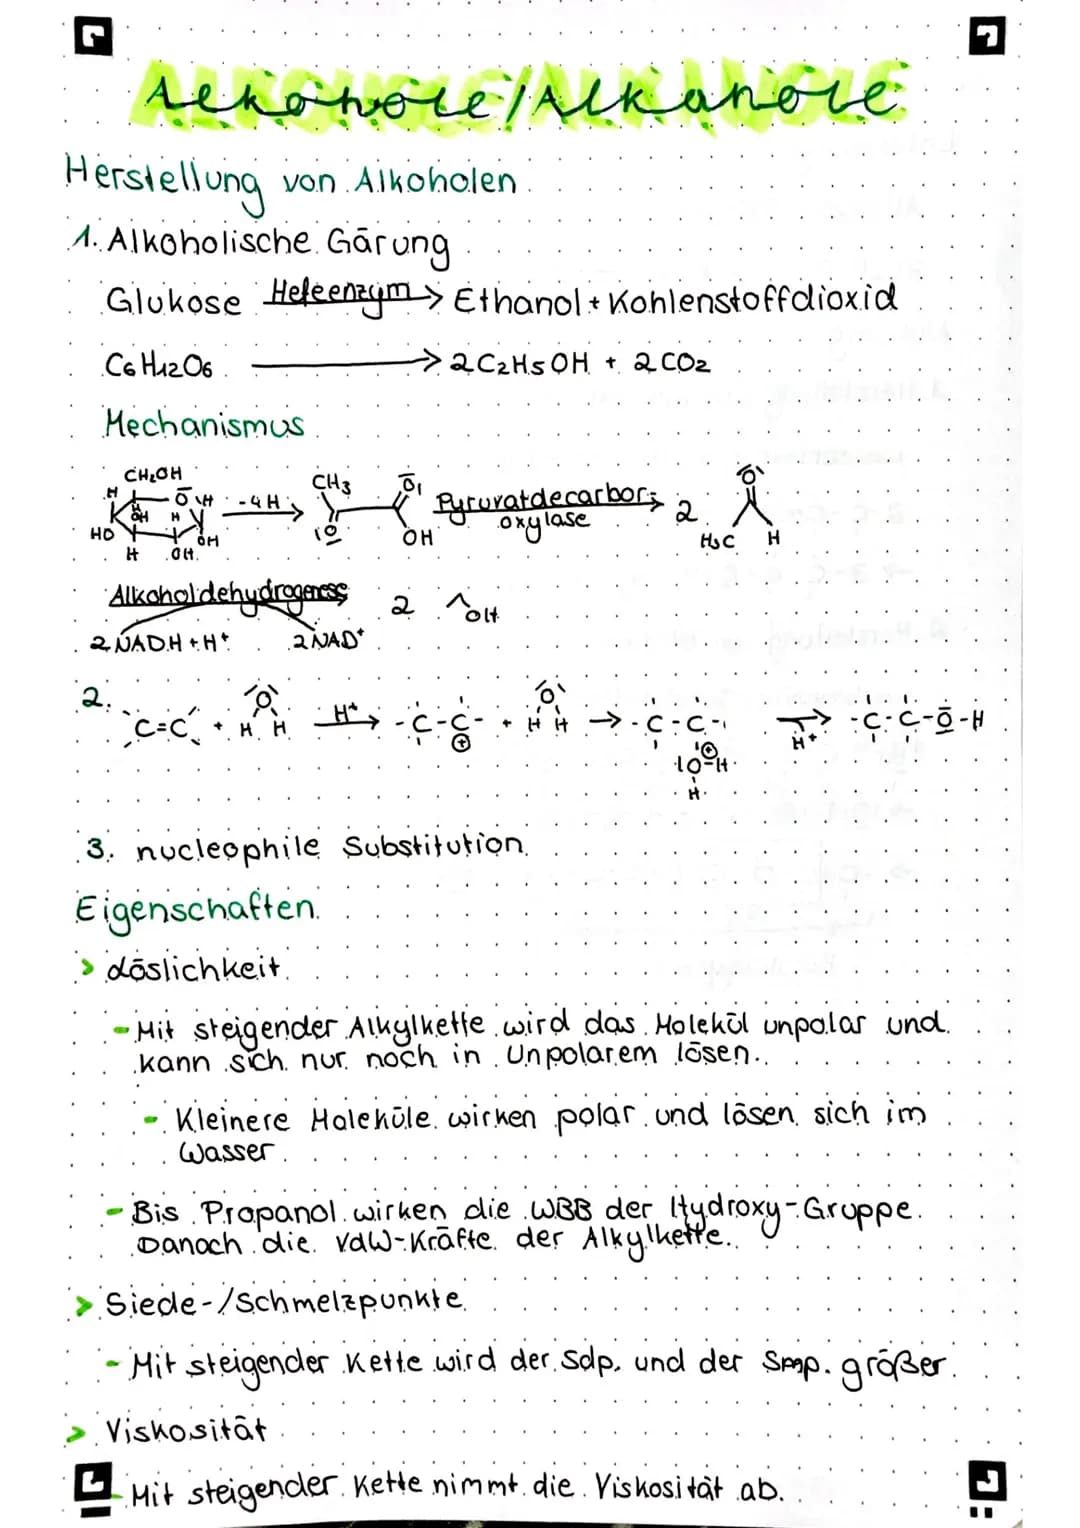 Alkohole/Alkanole
Herstellung von Alkoholen
1. Alkoholische Gärung
Glukose Hefeenzym → Ethanol + Kohlenstoffdioxid
C6H12O6 → 2 C2H5OH + 2 CO2
Mechanismus
CH2OH
H O H -4H → CH3 O
HO OH H OH O OH Pyruvatdecarboxylase → 2 O H3C H
H OH
Alkoholdehydrogenase 2 OH
2 NADH + H+ 2 NAD+
2. C=C + H O H H+ → -C-C- ⊕ + H O H → -C-C- → H+ -C-C-O-H
O⊕-H
H
3. nucleophile Substitution
Eigenschaften
> Löslichkeit
- Mit steigender Alkylkette wird das Molekül unpolar und
kann sich nur noch in Unpolarem lösen.
- Kleinere Moleküle wirken polar und lösen sich im
Wasser
- Bis Propanol wirken die WBB der Hydroxy-Gruppe.
Danach die VdW-Kräfte der Alkylkette.
> Siede-/Schmelzpunkte
- Mit steigender Kette wird der Sdp. und der Smp. größer.
> Viskosität
- Mit steigender Kette nimmt die Viskosität ab.